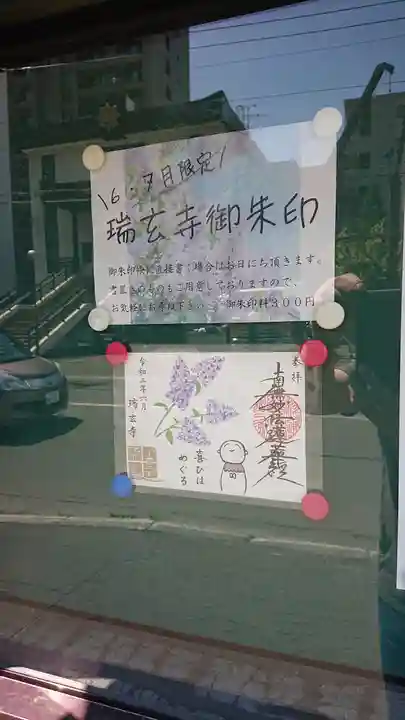 \6・7月限定/
瑞玄寺御朱印
御朱印帳に直接書く場合はお日にち頂きます。
書置きのものもご用意しておりますので、
お気軽にお尋ね下さい。 御朱印料300円
奉拝
南無妙法蓮華経
喜びは
めぐる
令和二年六月
瑞玄寺